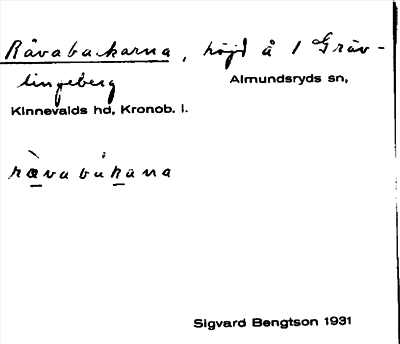 Rävabackarna, höjd å 1 Gräv-
lingeberg Almundsryds sn,
Kinnevalds hd, Kronob. l.
ràvabákana
Sigvard Bengtson 1931